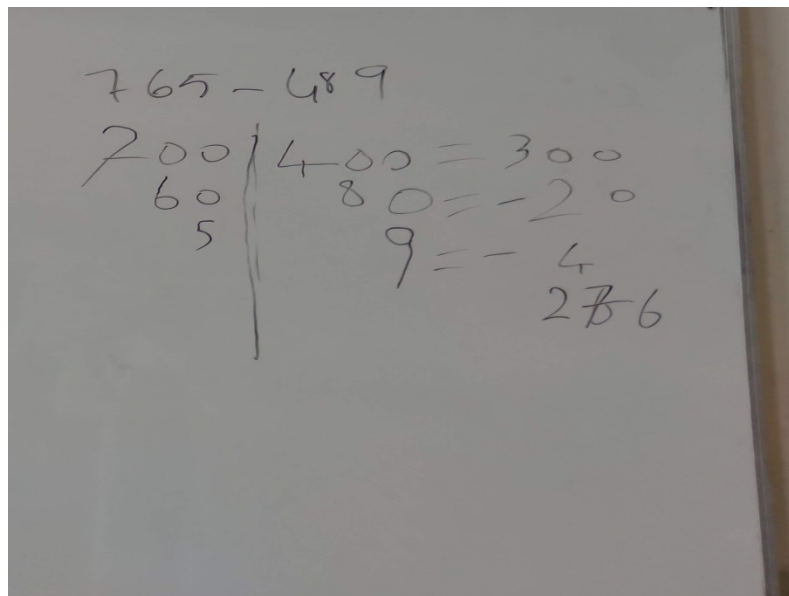 765 - 489
700 | 400 = 300
60 80 = - 20
5 9 = - 4
276